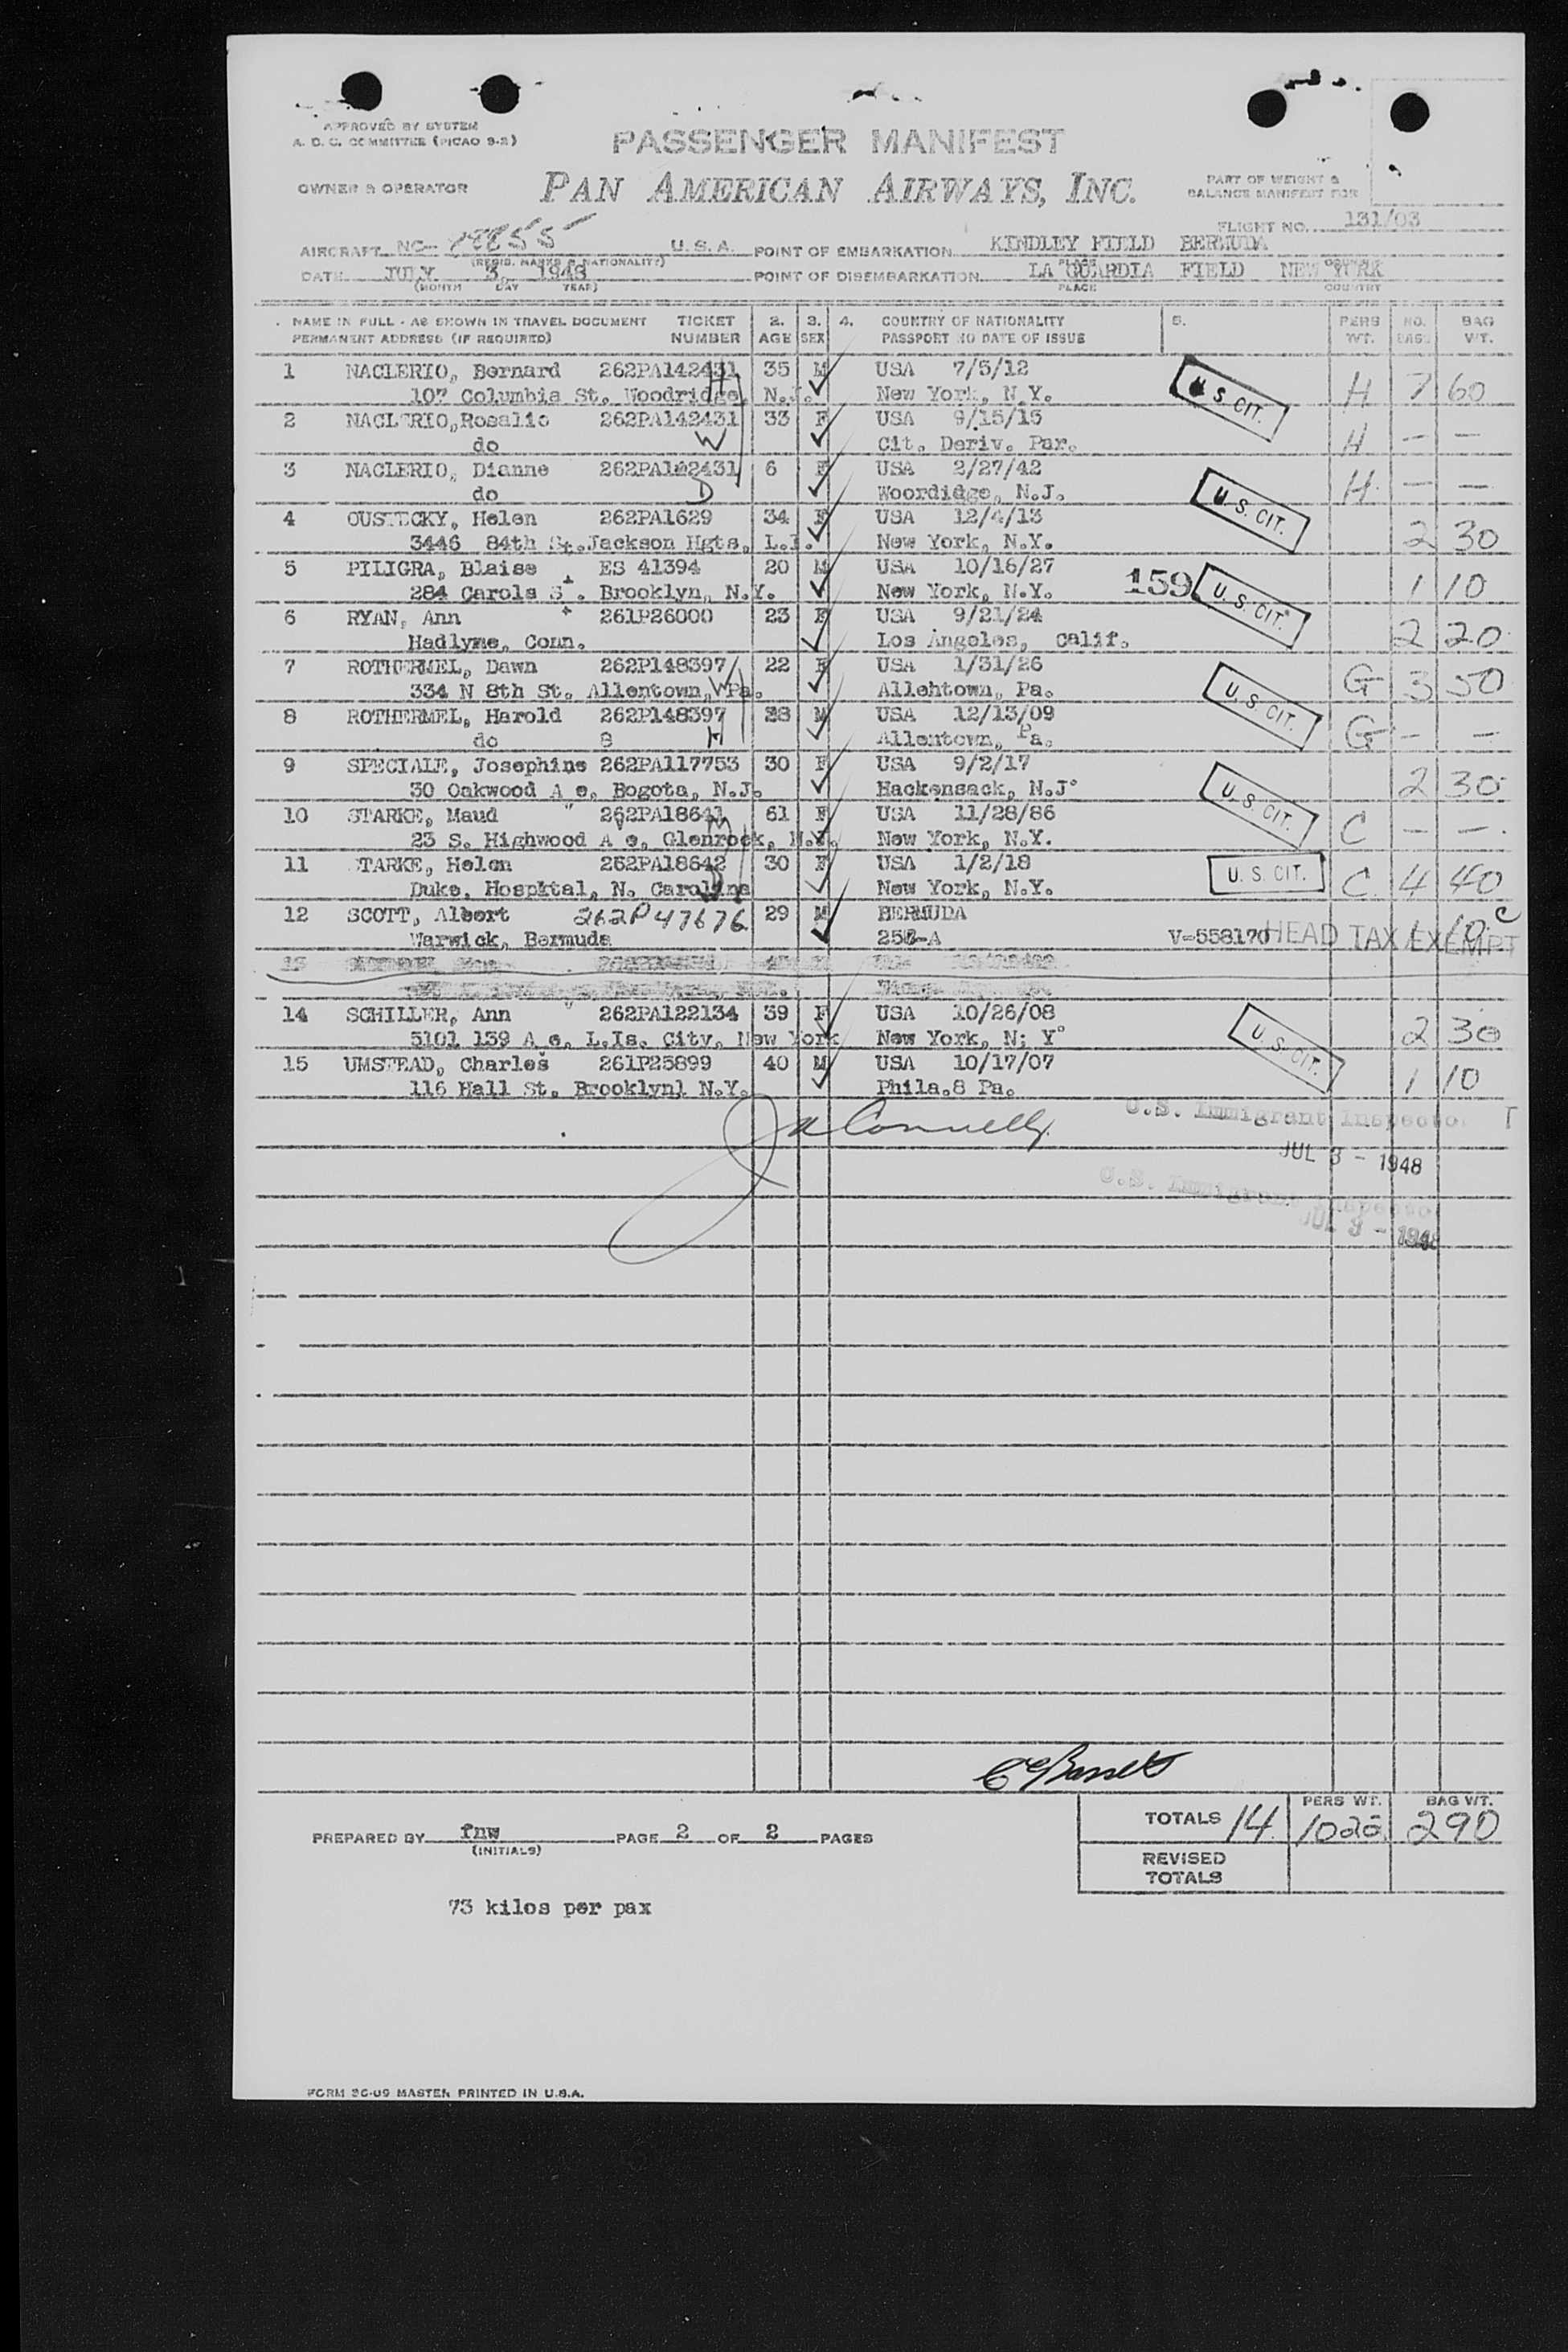 APPROVED BY SYSTEM
A. O. C. COMMITTEE (PICAO 9-2)
PASSENGER MANIFEST
OWNER & OPERATOR PAN AMERICAN AIRWAYS, INC.
PART OF WEIGHT &
BALANCE MANIFEST FOR
FLIGHT NO. 131/03
AIRCRAFT NC- U.S.A. POINT OF EMBARKATION KINDLEY FIELD BERMUDA
(REGIS. MARKS & NATIONALITY)
DATE JULY 3, 1948 POINT OF DISEMBARKATION LA GUARDIA FIELD NEW YORK
(MONTH DAY YEAR) PLACE COUNTRY
NAME IN FULL - AS SHOWN IN TRAVEL DOCUMENT TICKET 2. 3. 4. COUNTRY OF NATIONALITY 5. PERS NO. BAG
PERMANENT ADDRESS (IF REQUIRED) NUMBER AGE SEX PASSPORT NO DATE OF ISSUE WT. BAGS WT.
1 NACLERIO, Bernard 262PA142431 35 M USA 7/5/12 U.S. CIT.
107 Columbia St. Woodridge, N.J. H New York, N.Y. H 7 60
2 NACLERIO,Rosalie 262PA142431 33 F USA 9/15/15
do W Cit. Deriv. Par. H — —
3 NACLERIO, Dianne 262PA142431 6 F USA 2/27/42
do D Woordidge, N.J. H — —
4 OUSTECKY, Helen 262PA1629 34 F USA 12/4/13 U.S. CIT.
3446 84th St.Jackson Hgts, L.I. New York, N.Y. 2 30
5 PILIGRA, Blaise ES 41394 20 M USA 10/16/27
284 Carols St. Brooklyn, N.Y. New York, N.Y. 159 U.S. CIT. 1 10
6 RYAN, Ann 261P26000 23 F USA 9/21/24
Hadlyme, Conn. Los Angeles, Calif. 2 20
7 ROTHERMEL, Dawn 262P148397 22 F USA 1/31/26
334 N 8th St. Allentown, Pa. W Allehtown, Pa. U.S. CIT. G 3 50
8 ROTHERMEL, Harold 262P148397 38 M USA 12/13/09
do 8 H Allentown, Pa. G — —
9 SPECIALE, Josephine 262PA117753 30 F USA 9/2/17
30 Oakwood A e, Bogota, N.J. Hackensack, N.J. U.S. CIT. 2 30
10 STARKE, Maud 262PA18641 61 F USA 11/28/86
23 S. Highwood Ave, Glenrock, N.J. M New York, N.Y. C — —
11 STARKE, Helen 262PA18642 30 F USA 1/2/18 U.S. CIT.
Duke, Hospktal, N. Carolina D New York, N.Y. C 4 40
12 SCOTT, Albert 262P47676 29 M BERMUDA
Warwick, Bermuda V-558170 HEAD TAX EXEMPT 1 10 C
13
14 SCHILLER, Ann 262PA122134 39 F USA 10/26/08
5101 139 A e, L.Is. City, New York New York, N; Y. U.S. CIT. 2 30
15 UMSTEAD, Charles 261P25899 40 M USA 10/17/07
116 Hall St. Brooklyn1 N.Y. Phila.8 Pa. 1 10
U.S. Immigrant Inspector
JUL 3 - 1948
U.S. Immigrant Inspector
JUL 3 - 1948
TOTALS 14 PERS WT. 1022 BAG WT. 290
PREPARED BY fnw PAGE 2 OF 2 PAGES
(INITIALS)
REVISED
TOTALS
73 kilos per pax
MASTER PRINTED IN U.S.A.